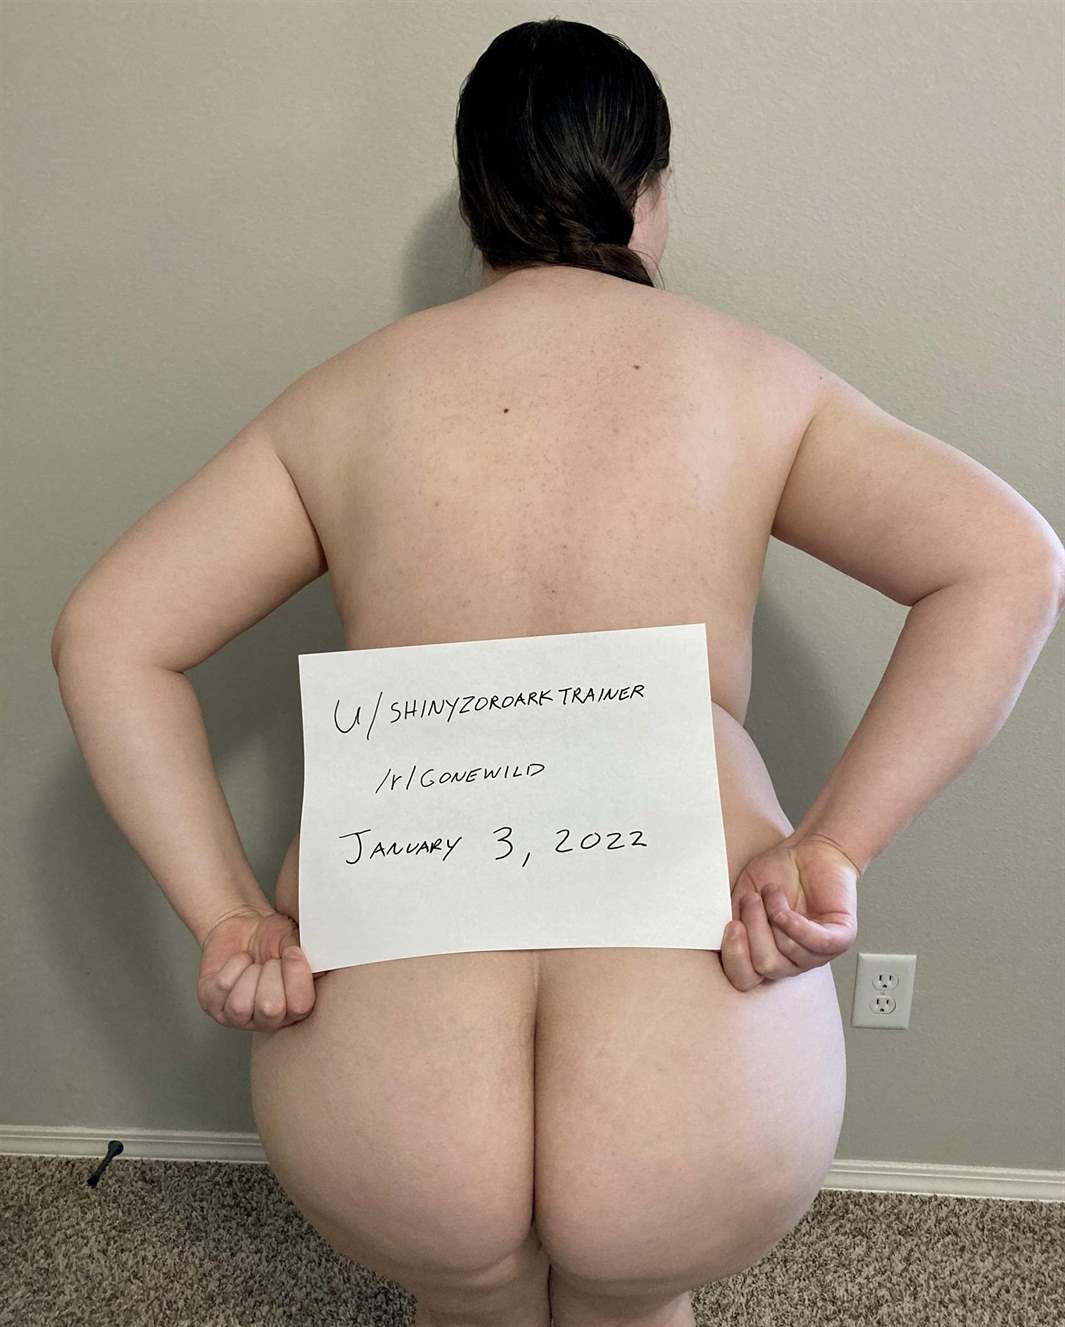 U/SHINYZOROARKTRAINER
/r/GONEWILD
JANUARY 3, 2022